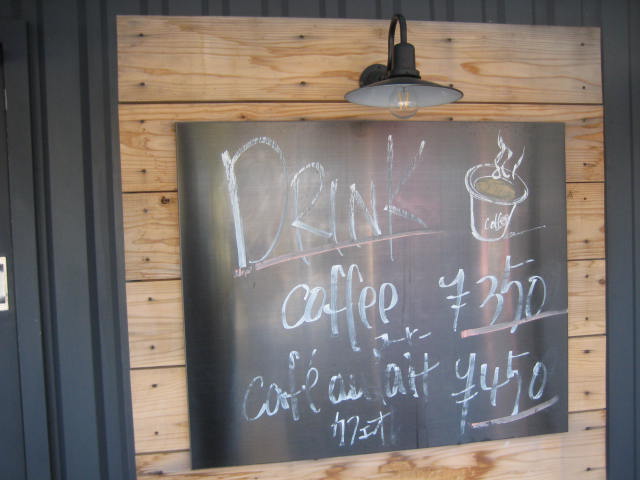 DRINK
coffee
coffee ¥350
コーヒー
café au lait ¥450
カフェオ